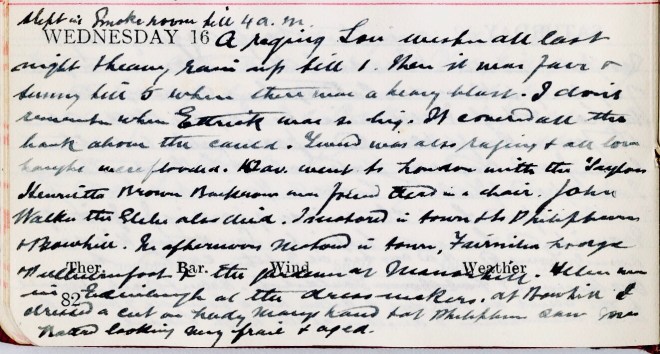 slept in Smoke room till 4 a.m.
WEDNESDAY 16 A raging Sou wester all last
night & heavy rain up till 1. Then it was fair &
sunny till 5 when there was a heavy blast. I dont
remember when Ettrick was so big. It covered all the
bank above the cauld. Tweed was also raging & all low
haughs were flooded. Dav. went to London with the Taylors
Henrietta Brown was found dead in a chair. John
Walker the Elder also died. I motored in town & to Philiphaugh
& Bowhill. In afternoon motored in town, Fairnilee
Ther. Bar. Wind Weather
& the at Manorhill. Helen was
82 in Edinburgh at the dressmakers. At Bowhill I
dressed a cut on Lady Marys hand & at Philiphaugh saw
looking very frail & aged.